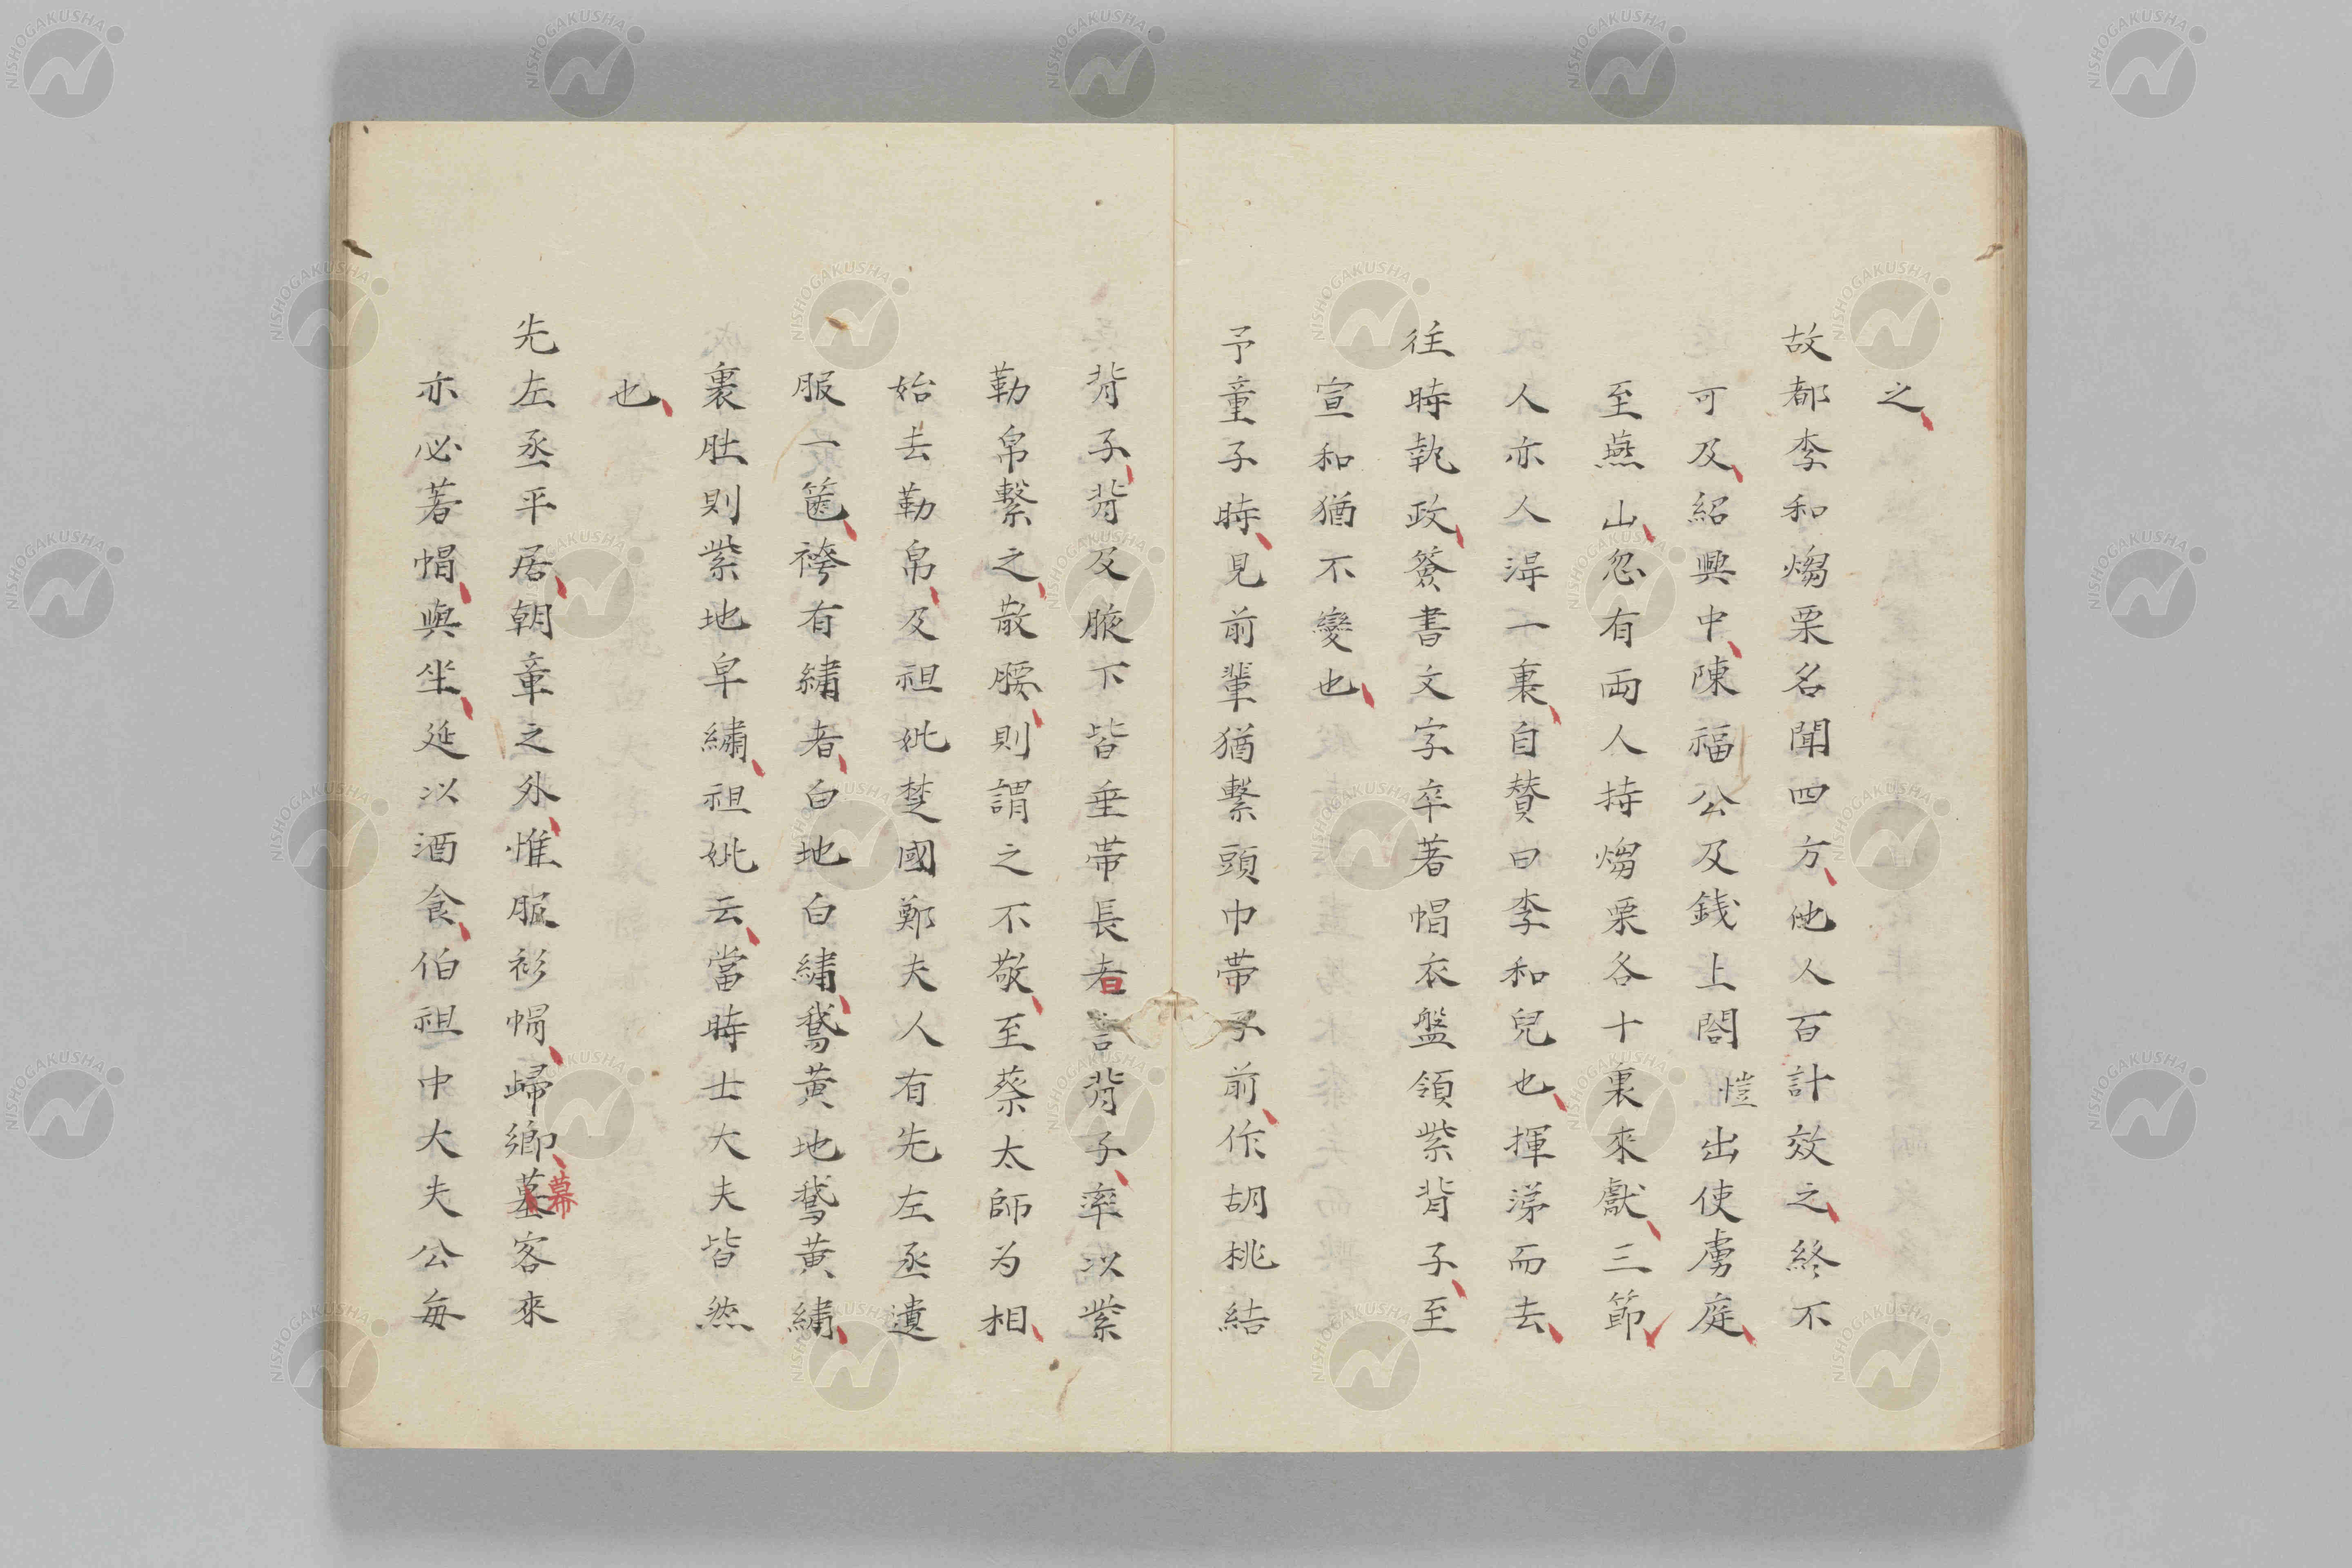 之
故都李和煼栗名聞四方他人百計效之終不
可及紹興中陳福公及錢上閤愷出使虜庭
至燕山忽有兩人持煼栗各十裹來獻三節
人亦人淂一裹自贊曰李和兒也揮涕而去
往時執政簽書文字卒著帽衣盤領紫背子至
宣和猶不變也
予童子時見前輩猶繫頭巾帶于前作胡桃結
背子背及腋下皆垂帶長者言背子率以紫
勒帛繫之散腰則謂之不敬至蔡太師为相
始去勒帛及祖妣楚國鄭夫人有先左丞遺
服一篋袴有繡者白地白繡鵞黃地鵞黃繡
裹肚則紫地皁繡祖妣云當時士大夫皆然
也
先左丞平居朝章之外惟服衫帽歸鄉墓客來
幕
亦必著帽與坐延以酒食伯祖中大夫公每
NISHOGAKUSHA